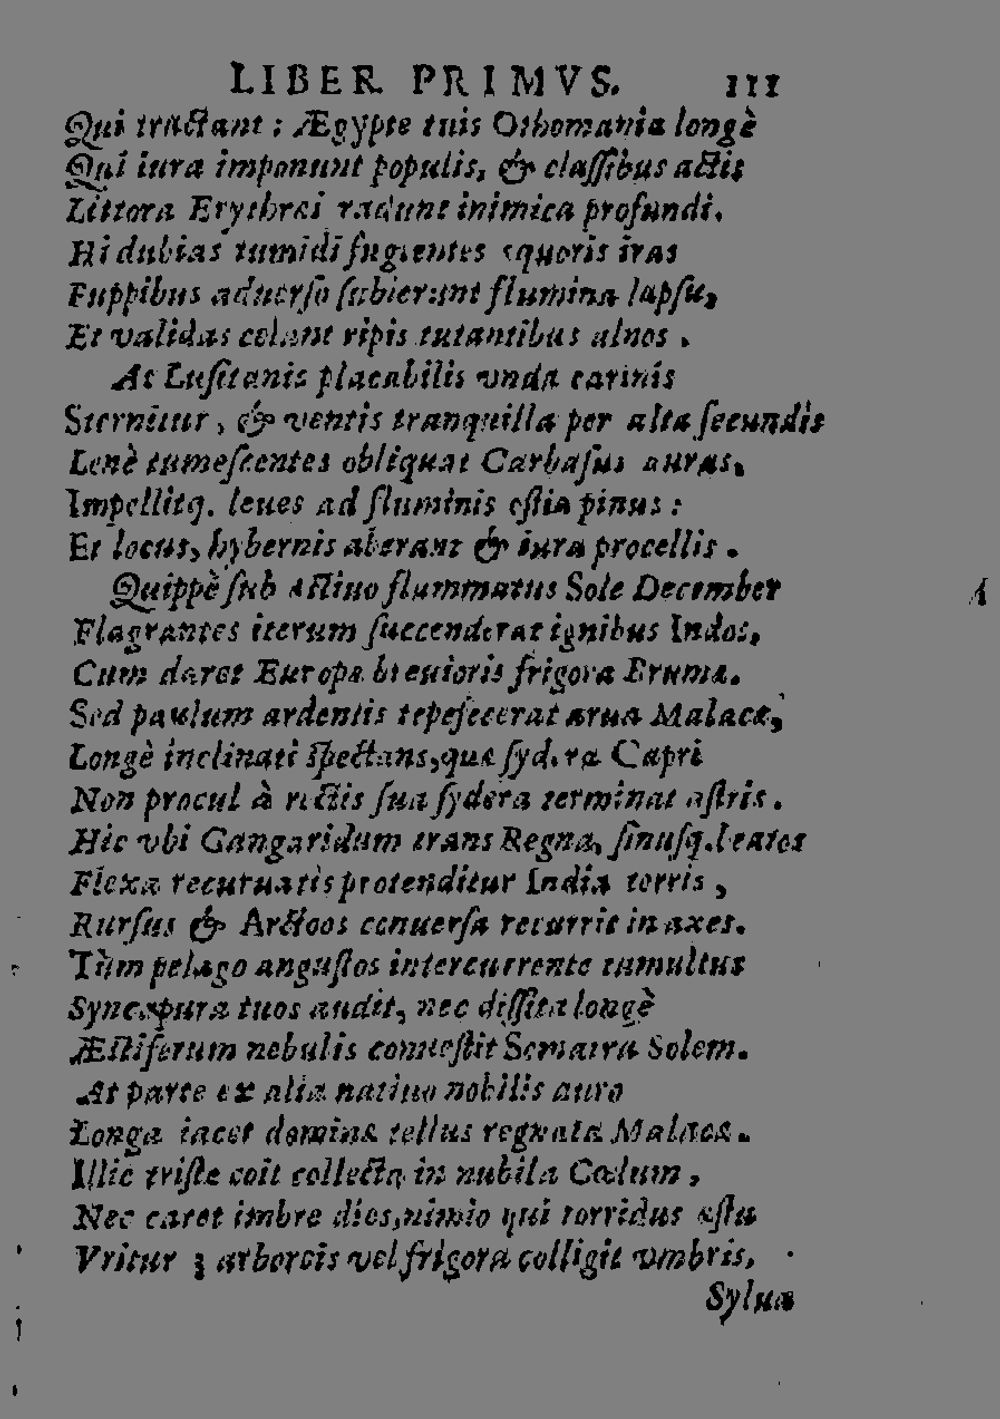 LIBER PRIMVS. III
Qui tractant; Ægypte tuis Othomania longè
Qui iura imponunt populis, & classibus actis
Littora Erythræi radunt inimica profundi.
Hi dubias tumidi fugientes æquoris iras
Puppibus aduerso subierunt flumina lapsu,
Et validas celant ripis tutantibus alnos.
At Lusitanis placabilis vnda carinis
Sternitur, & ventis tranquilla per alta secundis
Lenè tumescentes obliquat Carbasus auras,
Impellitq. leues ad fluminis ostia pinus:
Et locus, hybernis aberant & iura procellis.
Quippè sub æstiuo flammatus Sole December
Flagrantes iterum succenderat ignibus Indos,
Cum daret Europæ breuioris frigora Bruma.
Sed paulum ardentis tepefecerat arua Malacæ,
Longè inclinati spectans, quæ sydera Capri
Non procul à rectis sua sydera terminat astris.
Hic vbi Gangaridum trans Regna, sinusq. beatos
Flexa recuruatis protenditur India terris,
Rursus & Arctoos conuersa recurrit in axes.
Tùm pelago angustos intercurrente tumultus
Syncapura tuos audit, nec dissita longè
Æstiferum nebulis conuestit Somatra Solem.
At parte ex alia natiuo nobilis auro
Longa iacet domina tellus regnata Malaca.
Illic triste coit collecta in nubila Cœlum,
Nec caret imbre dies, nimio qui torridus æstu
Vritur; arboreis vel frigora colligit vmbris.
Syluæ